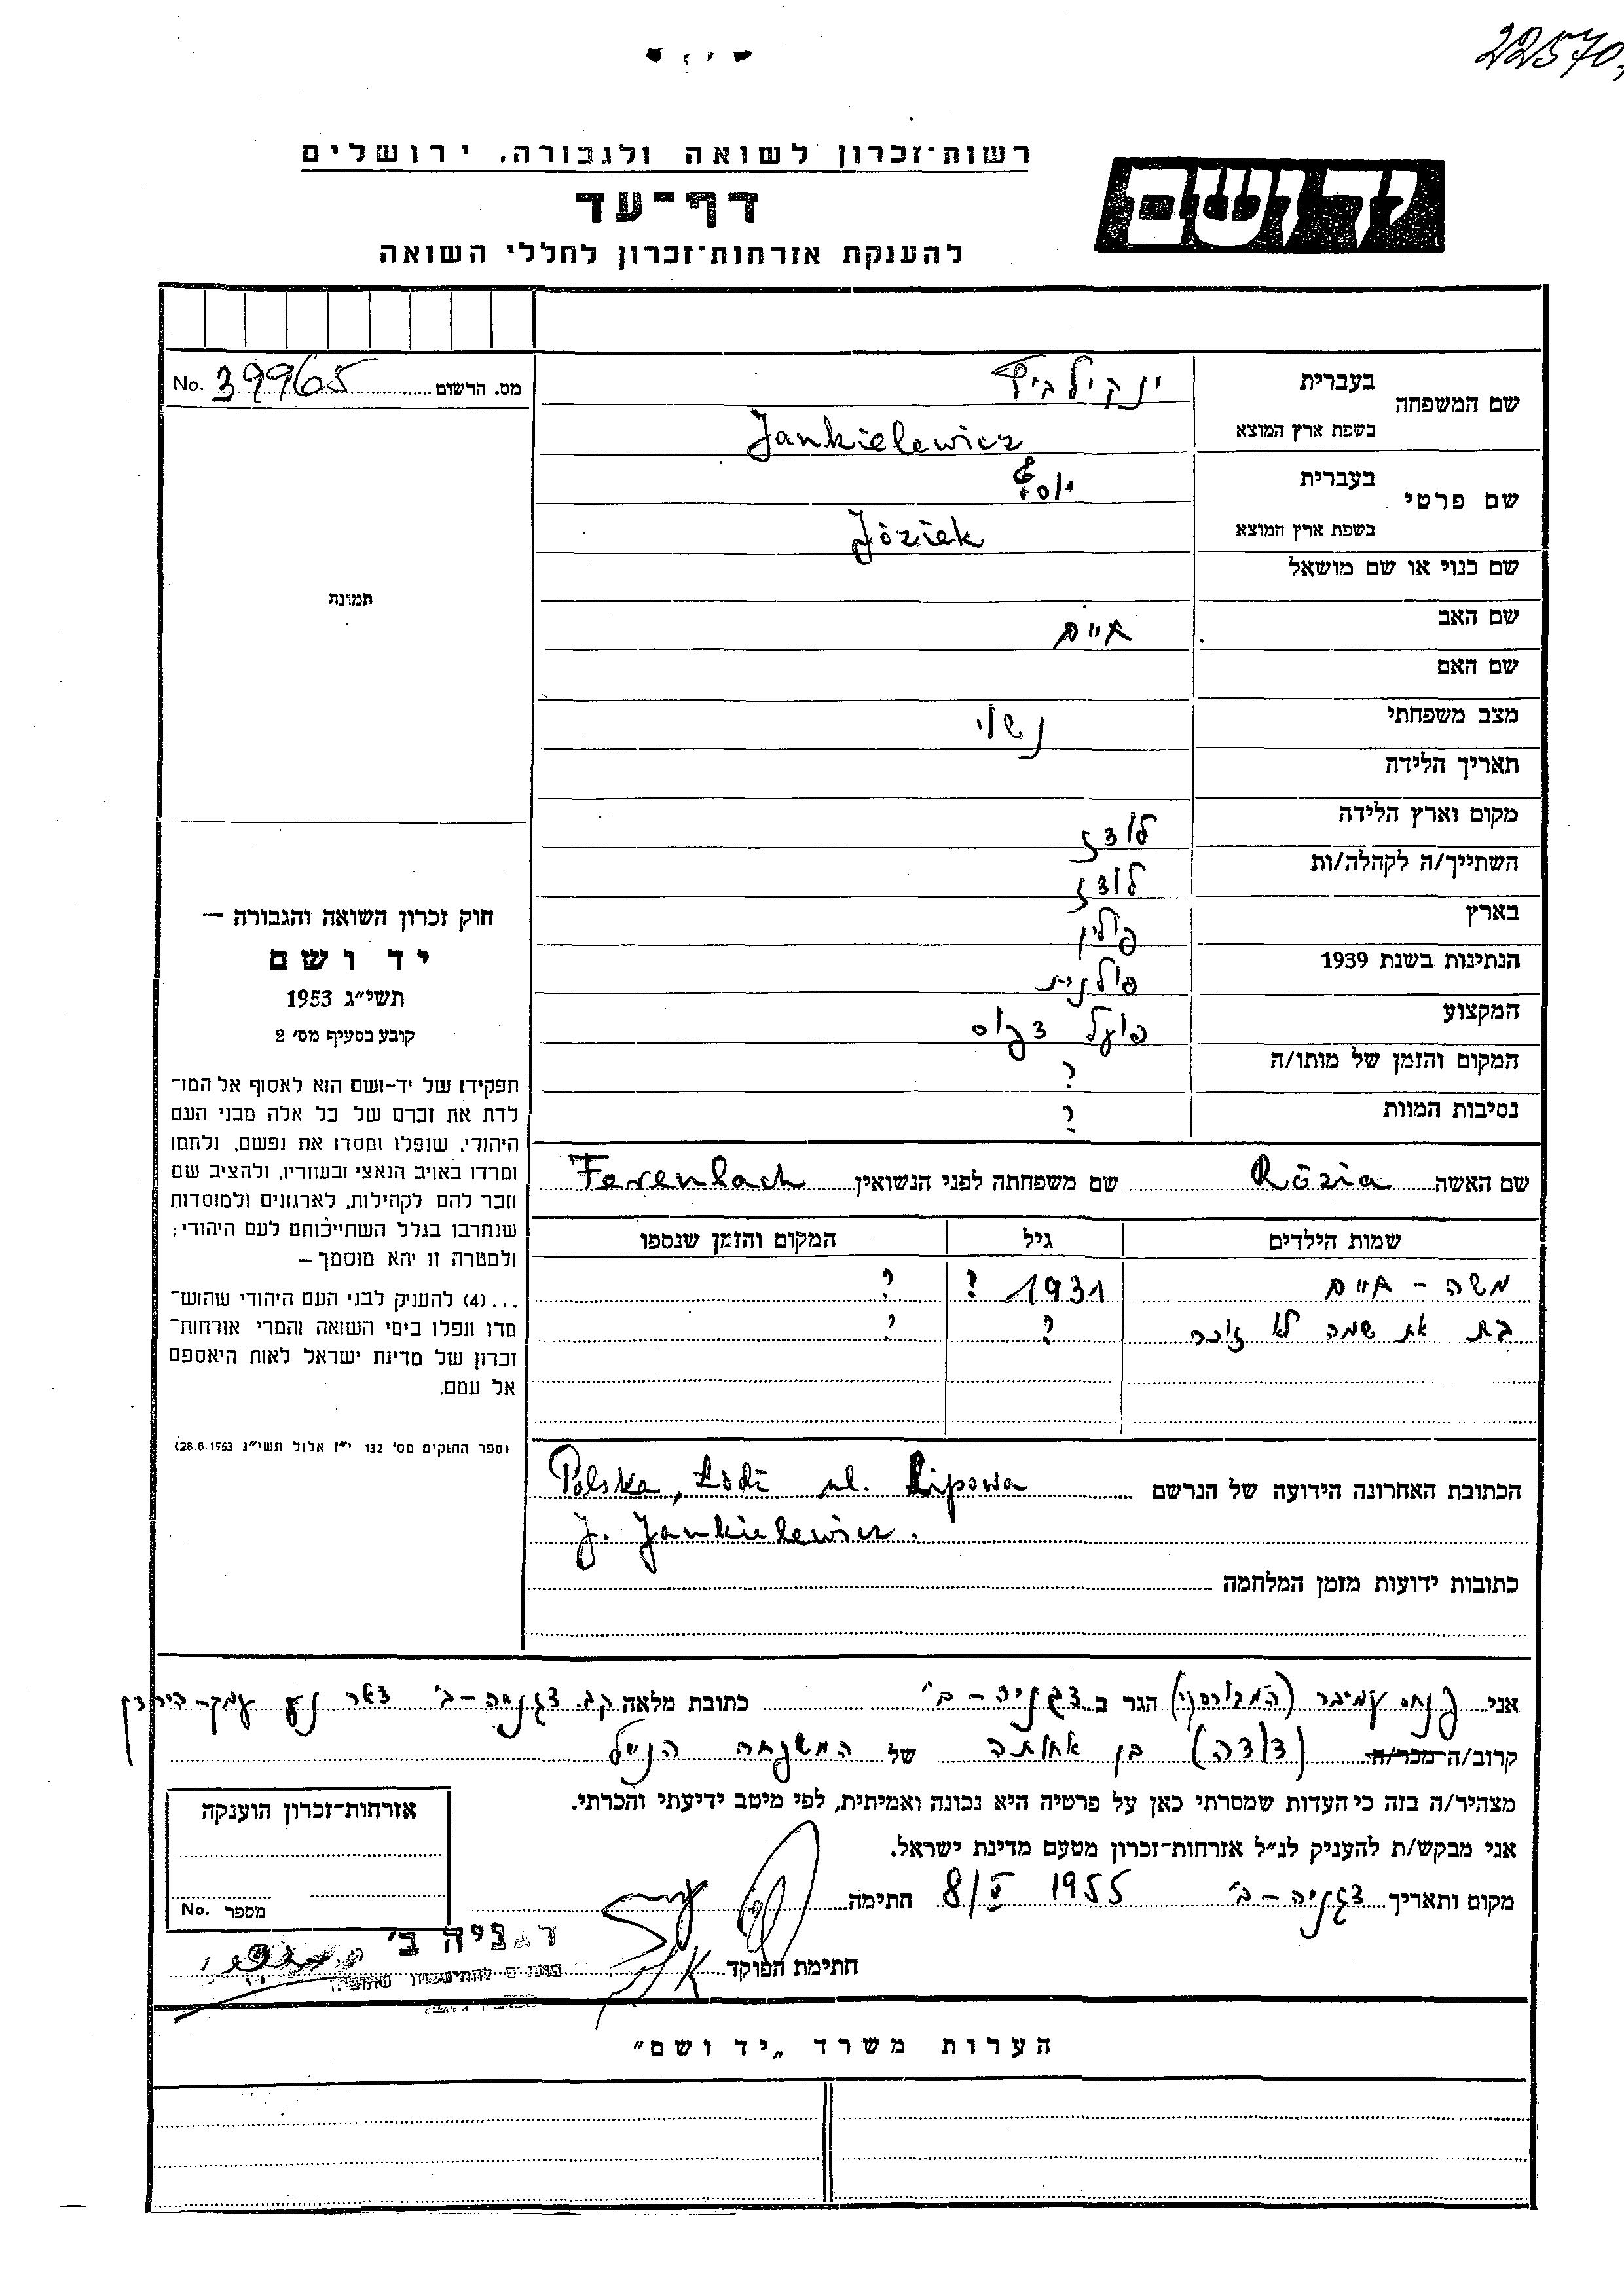 22570
רשות-זכרון לשואה ולגבורה, ירושלים
יד ושם
דף-עד
להענקת אזרחות-זכרון לחללי השואה
מס. הרשום 39965 No.
שם המשפחה בעברית ינקילביץ
בשפת ארץ המוצא Jankielewicz
שם פרטי בעברית יוסף
בשפת ארץ המוצא Józiek
שם כנוי או שם מושאל
שם האב חיים
שם האם
מצב משפחתי נשוי
תאריך הלידה
מקום וארץ הלידה לודז
השתייך/ה לקהלה/ות לודז
בארץ פולין
הנתינות בשנת 1939 פולנית
המקצוע פועל דפוס
המקום והזמן של מותו/ה ?
נסיבות המוות ?
תמונה
חוק זכרון השואה והגבורה —
יד ושם
תשי"ג 1953
קובע בסעיף מס' 2
תפקידו של יד-ושם הוא לאסוף אל המו־
לדת את זכרם של כל אלה מבני העם
היהודי, שנפלו ומסרו את נפשם, נלחמו
ומרדו באויב הנאצי ובעוזריו, ולהציב שם
וזכר להם לקהילות, לארגונים ולמוסדות
שנחרבו בגלל השתייכותם לעם היהודי;
ולמטרה זו יהא מוסמך —
...(4) להעניק לבני העם היהודי שהוש־
מדו ונפלו בימי השואה והמרי אזרחות־
זכרון של מדינת ישראל לאות היאספם
אל עמם.
(ספר החוקים מס' 132 י"ז אלול תשי"ג 28.8.1953)
שם האשה Rózia שם משפחתה לפני הנשואין Ferenbach
שמות הילדים גיל המקום והזמן שנספו
משה - חיים 1931 ? ?
בת את שמה לא זוכרת ? ?
הכתובת האחרונה הידועה של הנרשם Polska, Łódź ul. Lipowa
J. Jankielewicz.
כתובות ידועות מזמן המלחמה
אני עמיבר הגר ב דגניה-ב' כתובת מלאה קב. דגניה-ב' דאר נע עמק-הירדן
קרוב/ה מכר/ה (דודה) בן אחותה של המשפחה הנ"ל
מצהיר/ה בזה כי העדות שמסרתי כאן על פרטיה היא נכונה ואמיתית, לפי מיטב ידיעתי והכרתי.
אני מבקש/ת להעניק לנ"ל אזרחות-זכרון מטעם מדינת ישראל.
מקום ותאריך דגניה-ב' 8/V 1955 חתימה
חתימת הפוקד
דגניה ב'
אזרחות-זכרון הוענקה
מספר No.
הערות משרד „יד ושם"